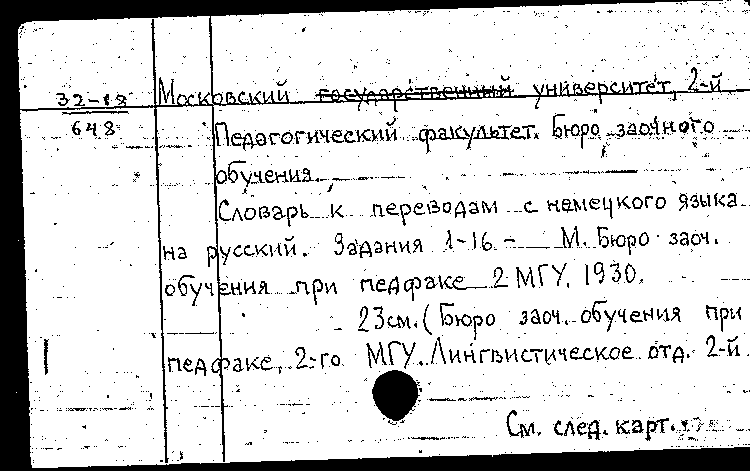 32-18
648
Московский государственный университет, 2-й
Педагогический факультет. Бюро заочного
обучения.
Словарь к переводам с немецкого языка
на русский. Задания 1-16 - М. Бюро заоч.
обучения при педфаке 2 МГУ. 1930.
23см. (Бюро заоч. обучения при
педфаке, 2-го МГУ. Лингвистическое отд. 2-й
См. след. карт.